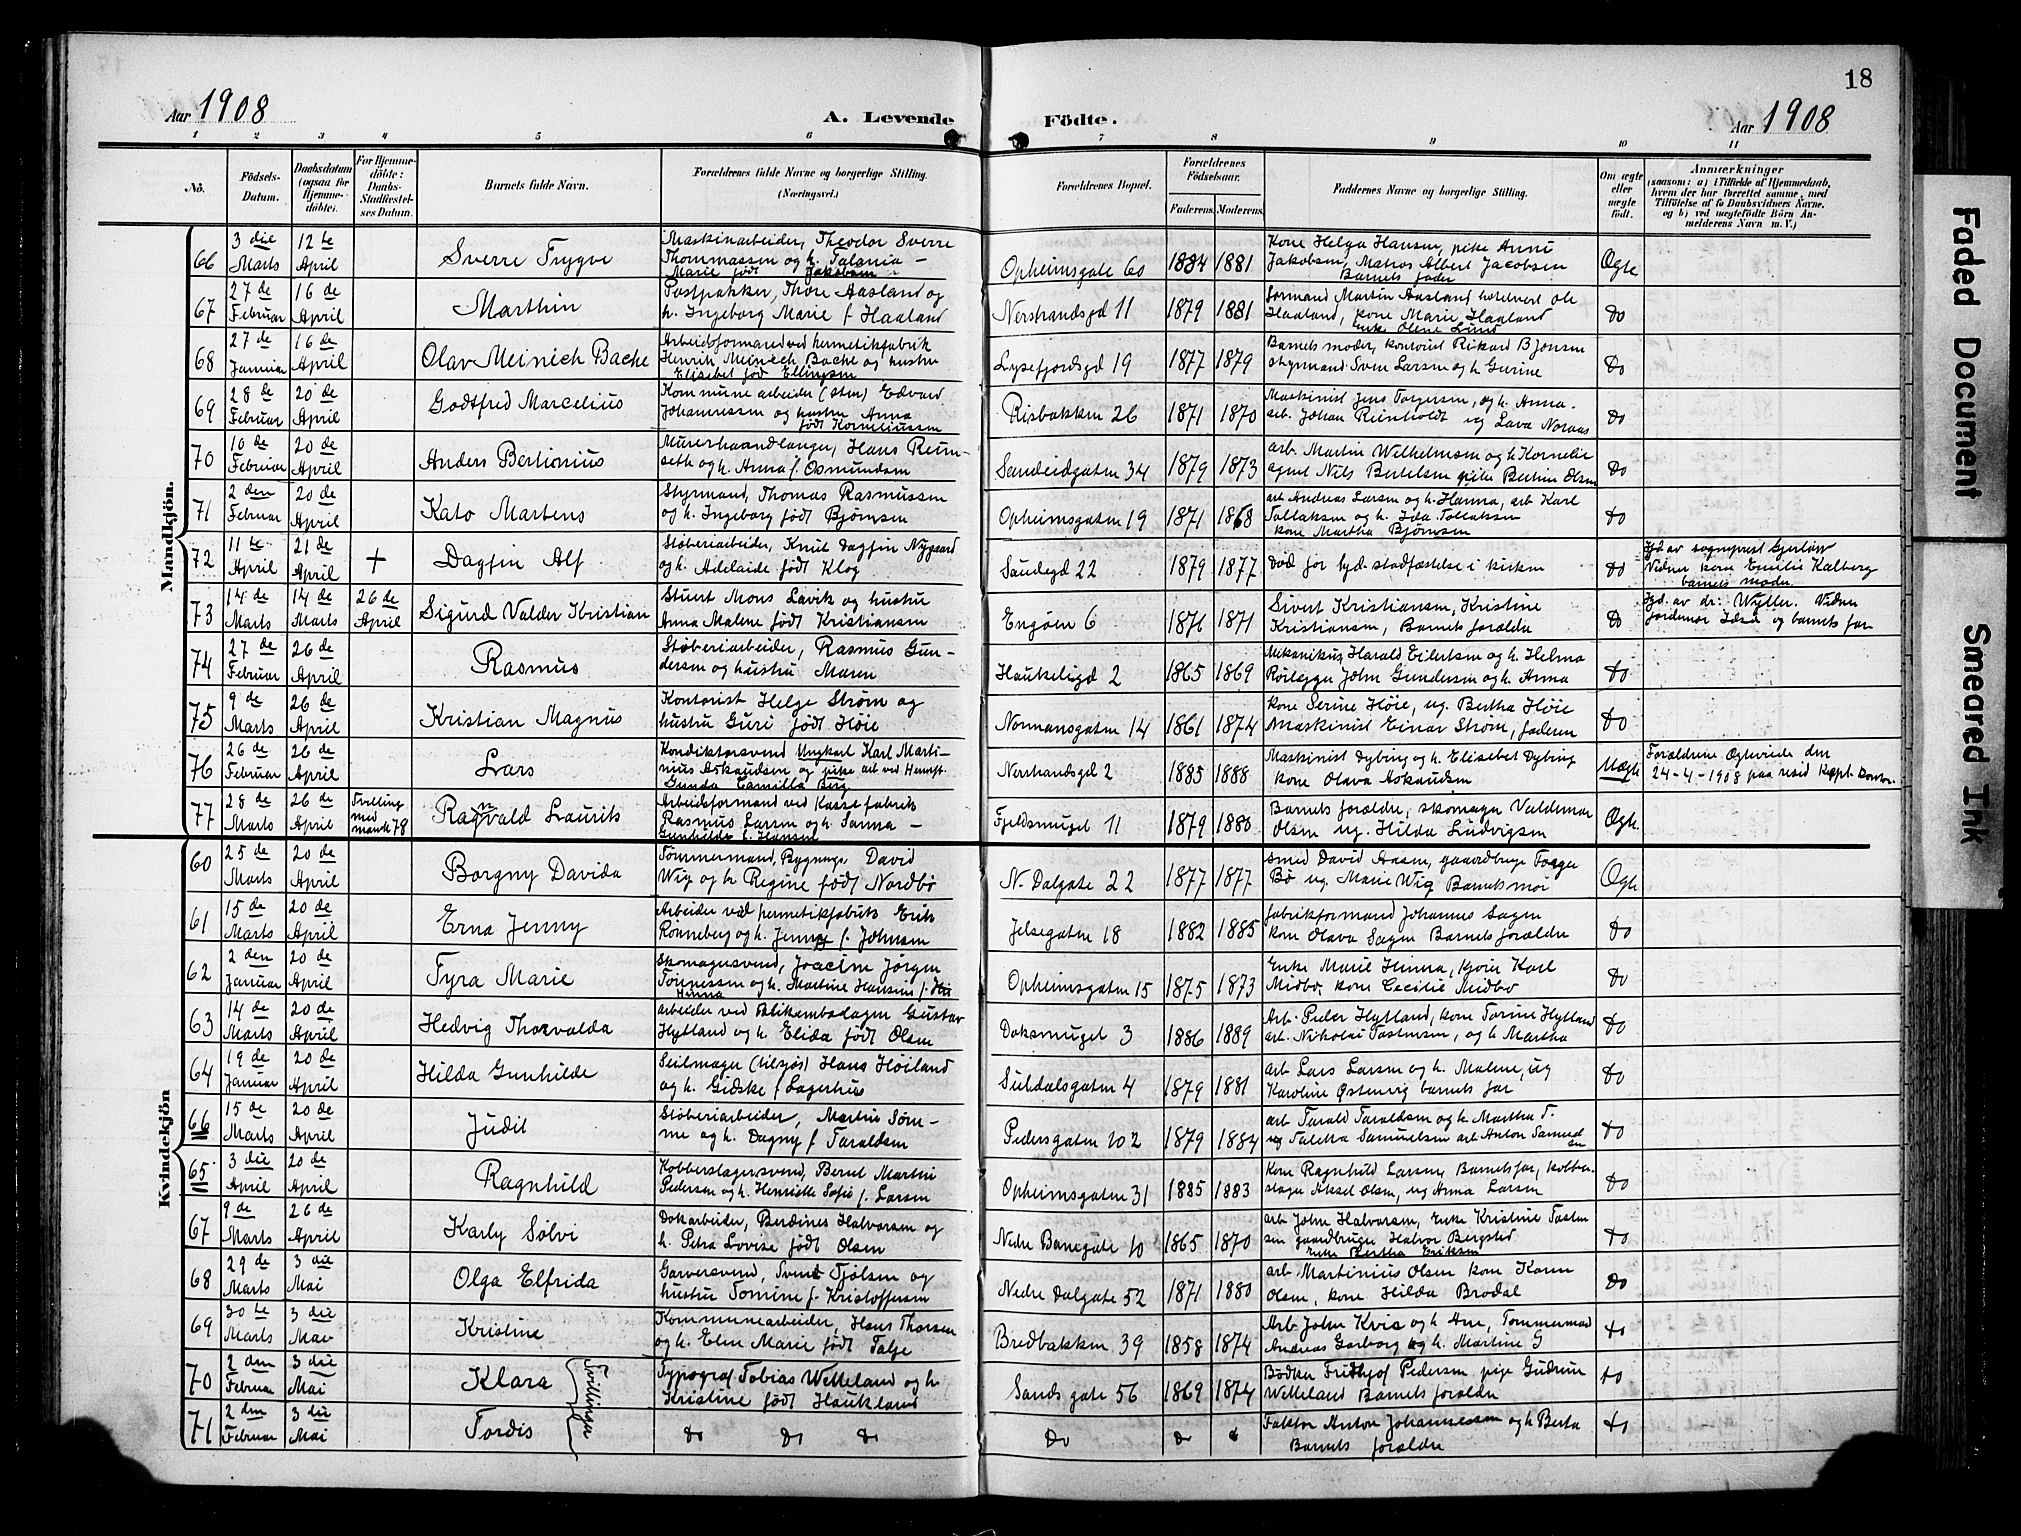 18
Aar 1908
A. Levende
Födte.
Aar 1908
1 2 3 4 5 6 7 8 9 10 11
No.
Födsels-
Datum.
Daabsdatum
(ogsaa for
Hjemme-
döbte).
For Hjemme-
döbte:
Daabs-
Stadfæstel-
ses Datum.
Barnets fulde Navn.
Forældrenes fulde Navne og borgerlige Stilling.
(Næringsvei.)
Forældrenes Bopæl.
Forældrenes
Födselsaar.
Faderens. Moderens.
Faddernes Navne og borgerlige Stilling.
Om ægte
eller
uægte
födt.
Anmærkninger
(saasom: a) i Tilfælde af Hjemmedaab,
hvem der har forrettet samme, med
Tilföielse af to Daabsvidners Navne,
og b) ved uægtefödte Börn An-
melderens Navn m. V.)
Mandkjön.
66
3 die Marts
12 te April
Sverre Trygve
Maskinarbeider, Theodor Sverre
Thommassen og h. Talania
Marie født Jakobsen
Opheimsgate 60
1884 1881
Kone Helga Hansen, pike Anni
Jakobsen, Matros Albert Jacobsen
Barnets fader
Ogte
67
27 de Februar
16 de April
Marthin
Postpakker, Thore Aasland og
h. Ingeborg Marie f Haaland
Nerstrandsgd 11
1879 1881
Formand Martin Aasland hotelvert Ole
Haaland, kone Marie Haaland
Enke Olene Lund
Do
68
27 de Januar
16 de April
Olav Meinich Backe
Arbeidsformand ved hermetikfabrik
Henrik Meinich Backe og hustru
Elisebet født Ellingsen
Lysefjordsgd 19
1877 1879
Barnets moder, kontorist Rikard Bjønsen
styrmand Sven Larsen og h. Gurine
Do
69
28 de Februar
20 de April
Godtfred Marcelius
Kommune arbeider (sten) Edvard
Johannessen og hustru Anna
født Korneliussen
Risbakken 26
1871 1870
Maskinist Jens Torgersen, og h. Anna
arb. Johan Reinholdt ug Lava Noraas
Do
70
10 de Februar
20 de April
Anders Bertionius
Murerhaandlanger, Hans Reim-
seth og h. Anna f. Osmundsen
Sandeidgaten 34
1879 1873
arb. Martin Welhelmsen og h Kornelie
agent Nils Bertelsen pike Bertine Olsen
Do
71
2 den Februar
20 de April
Kato Martens
Styrmand, Thomas Rasmussen
og h. Ingeborg født Bjørnsen
Opheimsgaten 19
1871 1868
arb Andreas Larsen og h. Hanna, arb Karl
Tollaksen og h. Ida Tollaksen
kone Martha Bjørnsen
Do
72
11 te April
21 de April
+
Dagfin Alf
Støberiarbeider, Knut Dagfin Nygaard
og h. Adelaide født Klog
Saudegd 22
1879 1877
Død før hjd. stadfæstelse i kirken
Do
Hjd av sogneprest Gjerløw
Vidner kone Emilie Kalberg
barnets moder.
73
14 de Marts
14 de Marts
26 de April
Sigurd Valder Kristian
Stuert Mons Lavik og hustru
Anna Malene født Kristiansen
Engøen 6
1876 1871
Sivert Kristiansen, Kristine
Kristiansen, Barnets foraldre
Do
Hjd. av dr: Wyller. Vidner
jordemor Idsø og barnets far
74
27 de Februar
26 de April
Rasmus
Støberiarbeider, Rasmus Gun-
dersen og hustru Maren
Haukeligd 2
1865 1869
Mekanikus Harald Eilertsen og h. Helma
Rørlægger John Gundersen og h. Anna
Do
75
9 de Marts
26 de April
Kristian Magnus
Kontorist Helge Strøm og
hustru Guri født Høie
Normansgaten 14
1861 1874
Kone Serine Høie, ug. Bertha Høie
Maskinist Einar Strøm, faderen
Do
76
26 de Februar
26 de April
Lars
Kondiktorsvend Ungkarl Karl Marti-
nius Askaudsen og pike arb ved Hermet.
Gunda Camilla Berg
Nerstrandsgd 2
1885 1888
Maskinist Dybing og h. Elisebet Dybing
kone Olava Askaudsen
Uægte
Foraldrene Ogteviede den
24-4-1908 paa resid Kapt. kontor.
77
28 de Marts
26 de April
Tvilling
med
mandk 78
Ragnvald Laurits
Arbeidsformand ved Kassefabrik
Rasmus Larsen og h. Sanna
Gunhilda f. Hansen
Fjeldsmuget 11
1879 1880
Barnets foraldre, skomager Valdemar
Olsen ug. Hilda Ludvigsen
Ogte
Kvindekjön
60
25 de Marts
20 de April
Borgny Davida
Tømmermand, Bygnings David
Wig og h Regine født Nordbø
N. Dalgate 22
1877 1877
Smed David Aasen, gaardbruger Torger
Bø ug. Marie Wig Barnets mor
Ogte
61
15 de Marts
20 de April
Erna Jenny
Arbeider ved hermetikfabrik Erik
Rønneberg og h. Jenny f. Johnsen
Jelsegaten 18
1882 1885
Fabrikformand Johannes Sagen
kone Olava Sagen Barnets foraldre
Do
62
2 den Januar
20 de April
Tyra Marie
Skomagersvend, Joacim Jørgen
Tønnessen og h. Martine Hansine f.
Hinna
Opheimsgaten 15
1875 1873
Enke Marie Hinna, kjører Karl
Midbø, kone Cecilie Midbø
Do
63
14 de Marts
20 de April
Hedvig Thorvalda
arbeider ved Blikemballagen Gustav
Hylland og h. Elida født Olsen
Doksmuget 3
1886 1889
Arb. Peder Hylland, kone Torine Hylland
arb. Nikolai Tostensen, og h Martha
Do
64
19 de Januar
20 de April
Hilda Gunhilde
Seilmager (tilsjøs) Hans Høiland
og h. Gidske f Lagerhus
Suldalsgaten 4
1879 1881
arb Lars Larsen og h. Malene, ug
Karoline Østenvig barnets far
Do
66
15 de Marts
20 de April
Judit
Støberiarbeider, Martin Søm-
me og h. Dagny f Taraldsen
Pedersgaten 102
1879 1884
arb Tarald Taraldsen og h. Martha T.
ug Taletta Samuelsen arb Anton Samuel
sen
Do
65
3 die April
20 de April
Ragnhild
Kobberslagersvend, Bernt Martin
Pedersen og h. Henriette Sofie f. Larsen
Opheimsgaten 31
1885 1883
Kone Ragnhild Larsen, Barnets far, kobber-
slager Aksel Olsen, ug Anna Larsen
Do
67
9 de Marts
26 de April
Karly Solvi
Dokarbeider, Berdines Halvorsen og
h. Petra Lovise født Olsen
Nedre Banegate 10
1865 1870
arb John Halvorsen, Enke Kristine Tosten
sen gaardbruger Halvor Bergsted
Enke Bertha Eriksen
Do
68
29 de Marts
3 die Mai
Olga Elfrida
Garversvend, Svend Tjølsen og
hustru Tomine f. Kristoffersen
Nedre Dalgate 52
1871 1880
arb Martinius Olsen kone Karen
Olsen, kone Hilda Brodal
Do
69
30 te Marts
3 die Mai
Kristine
Kommunearbeider, Hans Thorsen
og h. Elen Marie født Talje
Bredbakken 39
1858 1874
Arb John Kvis og h Ane, Tømmermand
Andreas Garborg og h. Martine G
Do
70
2 den Februar
3 die Mai
Klara
Tvillinger
Typograf Tobias Wetteland og h
Kristine født Haukland
Sands gate 56
1869 1874
Bødker Fridthjof Pedersen pige Gudrun
Wetteland Barnets foraldre
Do
71
2 den Februar
3 die Mai
Tordis
Do Do Do
Do
Do
Faktor Anton Johannessen og h Berta
Barnets foraldre
Do
Faded Document
Smeared Ink